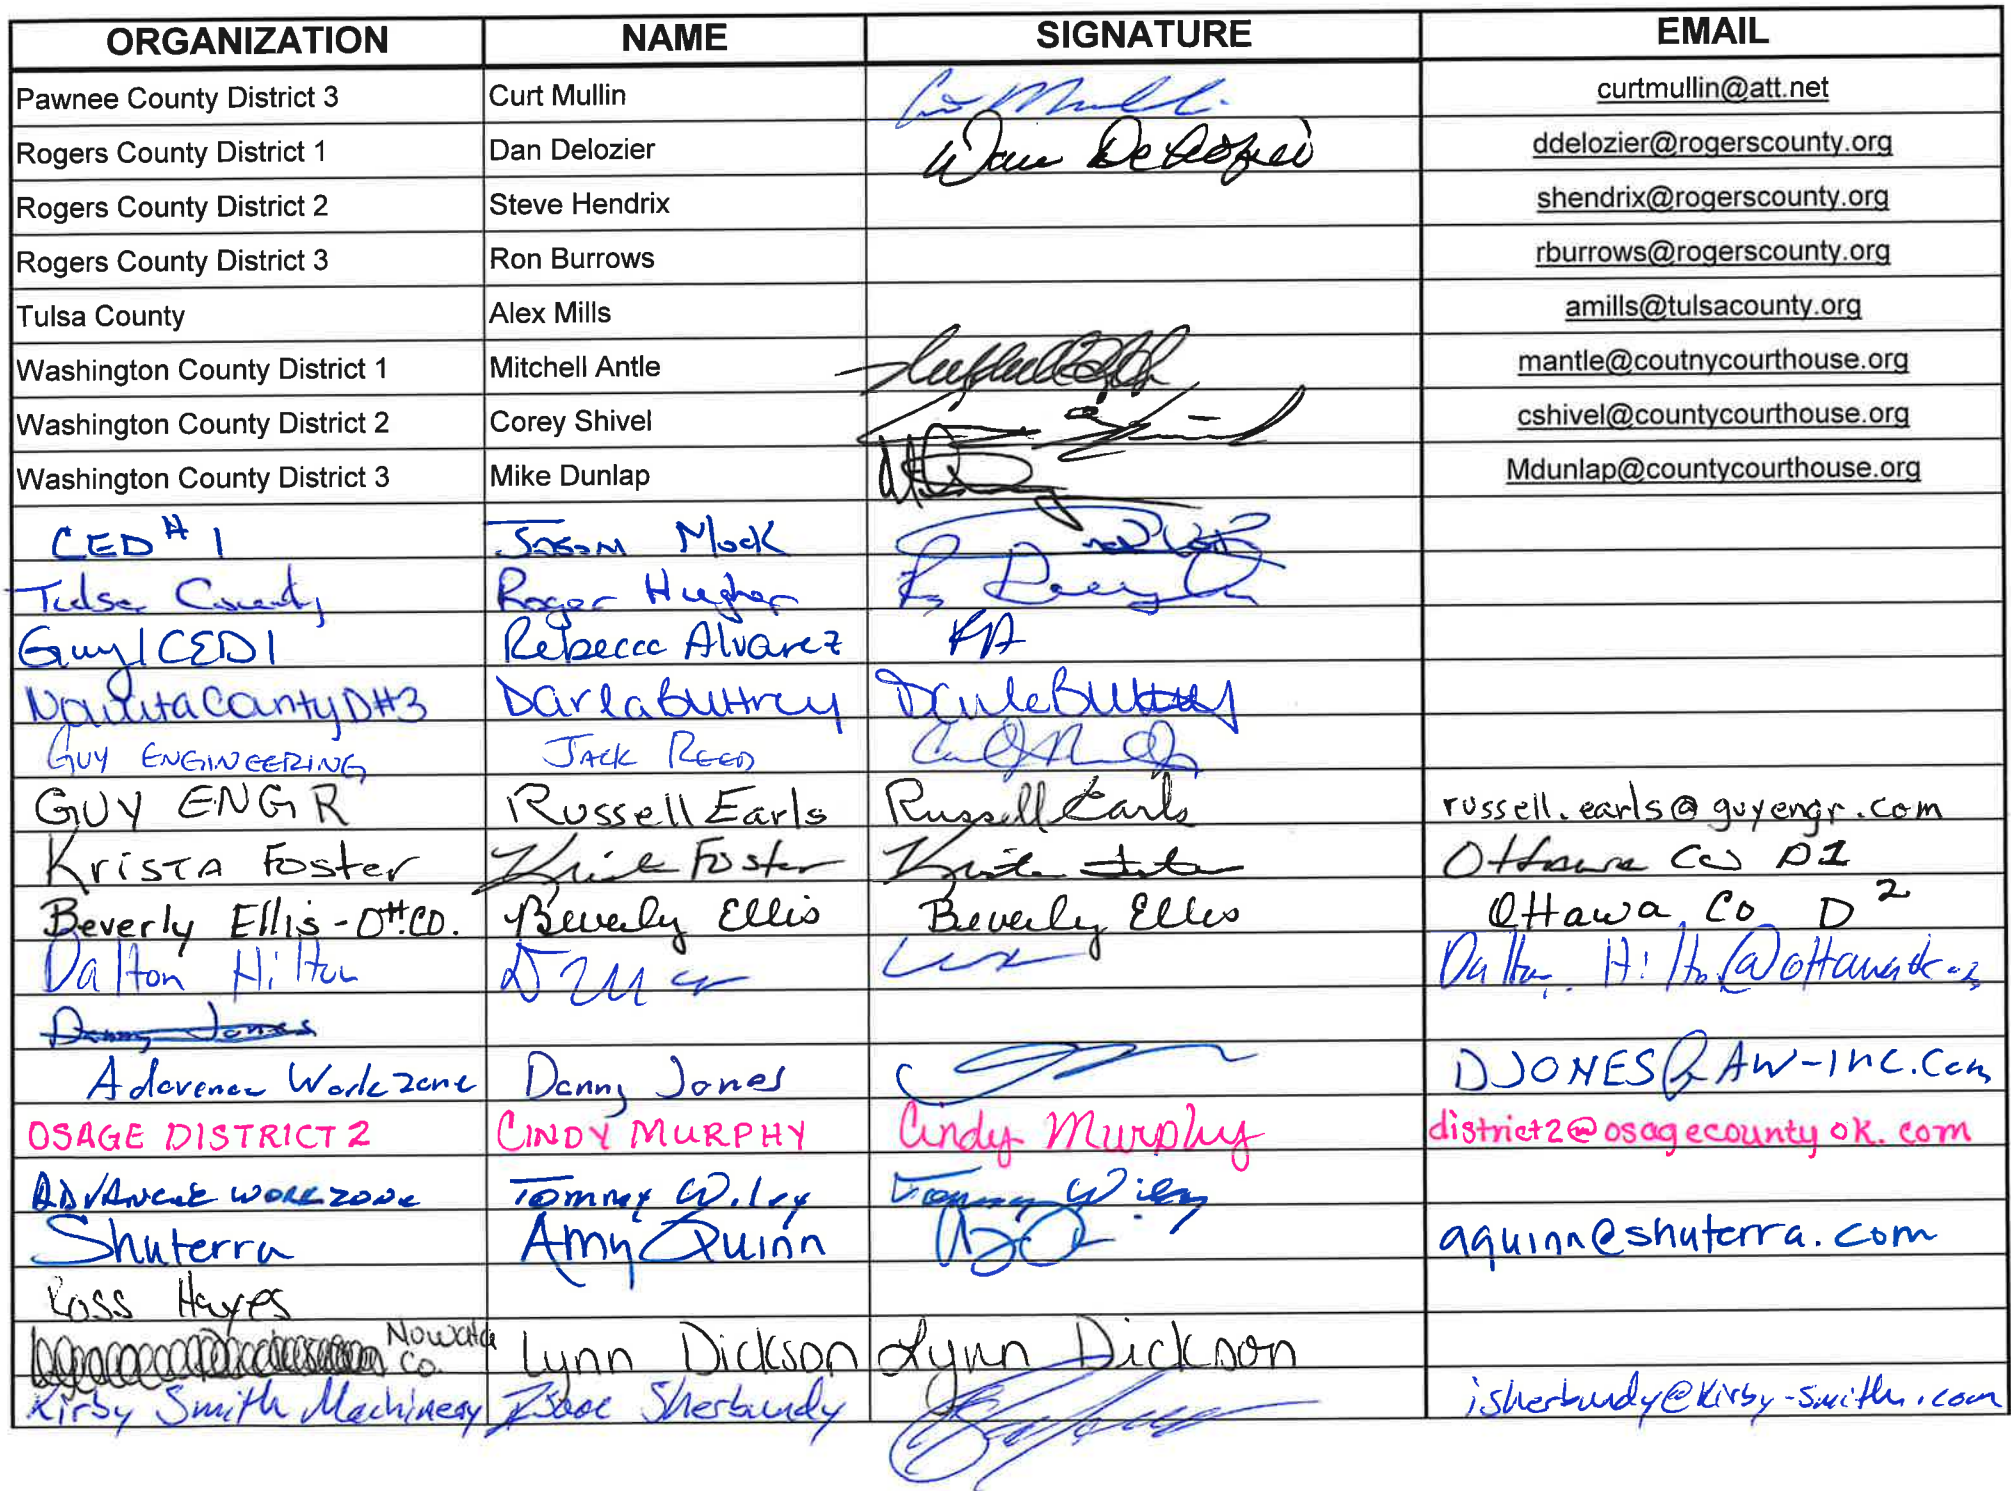 ORGANIZATION NAME SIGNATURE EMAIL
Pawnee County District 3 Curt Mullin curtmullin@att.net
Rogers County District 1 Dan Delozier Dan Delozier ddelozier@rogerscounty.org
Rogers County District 2 Steve Hendrix shendrix@rogerscounty.org
Rogers County District 3 Ron Burrows rburrows@rogerscounty.org
Tulsa County Alex Mills amills@tulsacounty.org
Washington County District 1 Mitchell Antle mantle@coutnycourthouse.org
Washington County District 2 Corey Shivel cshivel@countycourthouse.org
Washington County District 3 Mike Dunlap Mdunlap@countycourthouse.org
CED #1 Jason Mock
Tulsa County Roger Hughes
Guy/CED1 Rebecca Alvarez RA
Nowata County D#3 Darla Buttrey Darla Buttrey
GUY ENGINEERING JACK REED
GUY ENGR Russell Earls Russell Earls russell.earls@guyengr.com
Krista Foster Krista Foster Krista Foster Ottawa Co D1
Beverly Ellis-Ott.CO. Beverly Ellis Beverly Ellis Ottawa Co D2
Dalton Hilton
Danny Jones
Advance Workzone Danny Jones DJONES@AW-INC.Com
OSAGE DISTRICT 2 CINDY MURPHY Cindy Murphy district2@osagecountyok.com
ADVANCE WORKZONE Tommy Wiley Tommy Wiley
Shuterra Amy Quinn aquinn@shuterra.com
Ross Hayes
Nowata Co. Lynn Dickson Lynn Dickson
Kirby Smith Machinery Isaac Sherbundy isherbundy@kirby-smith.com